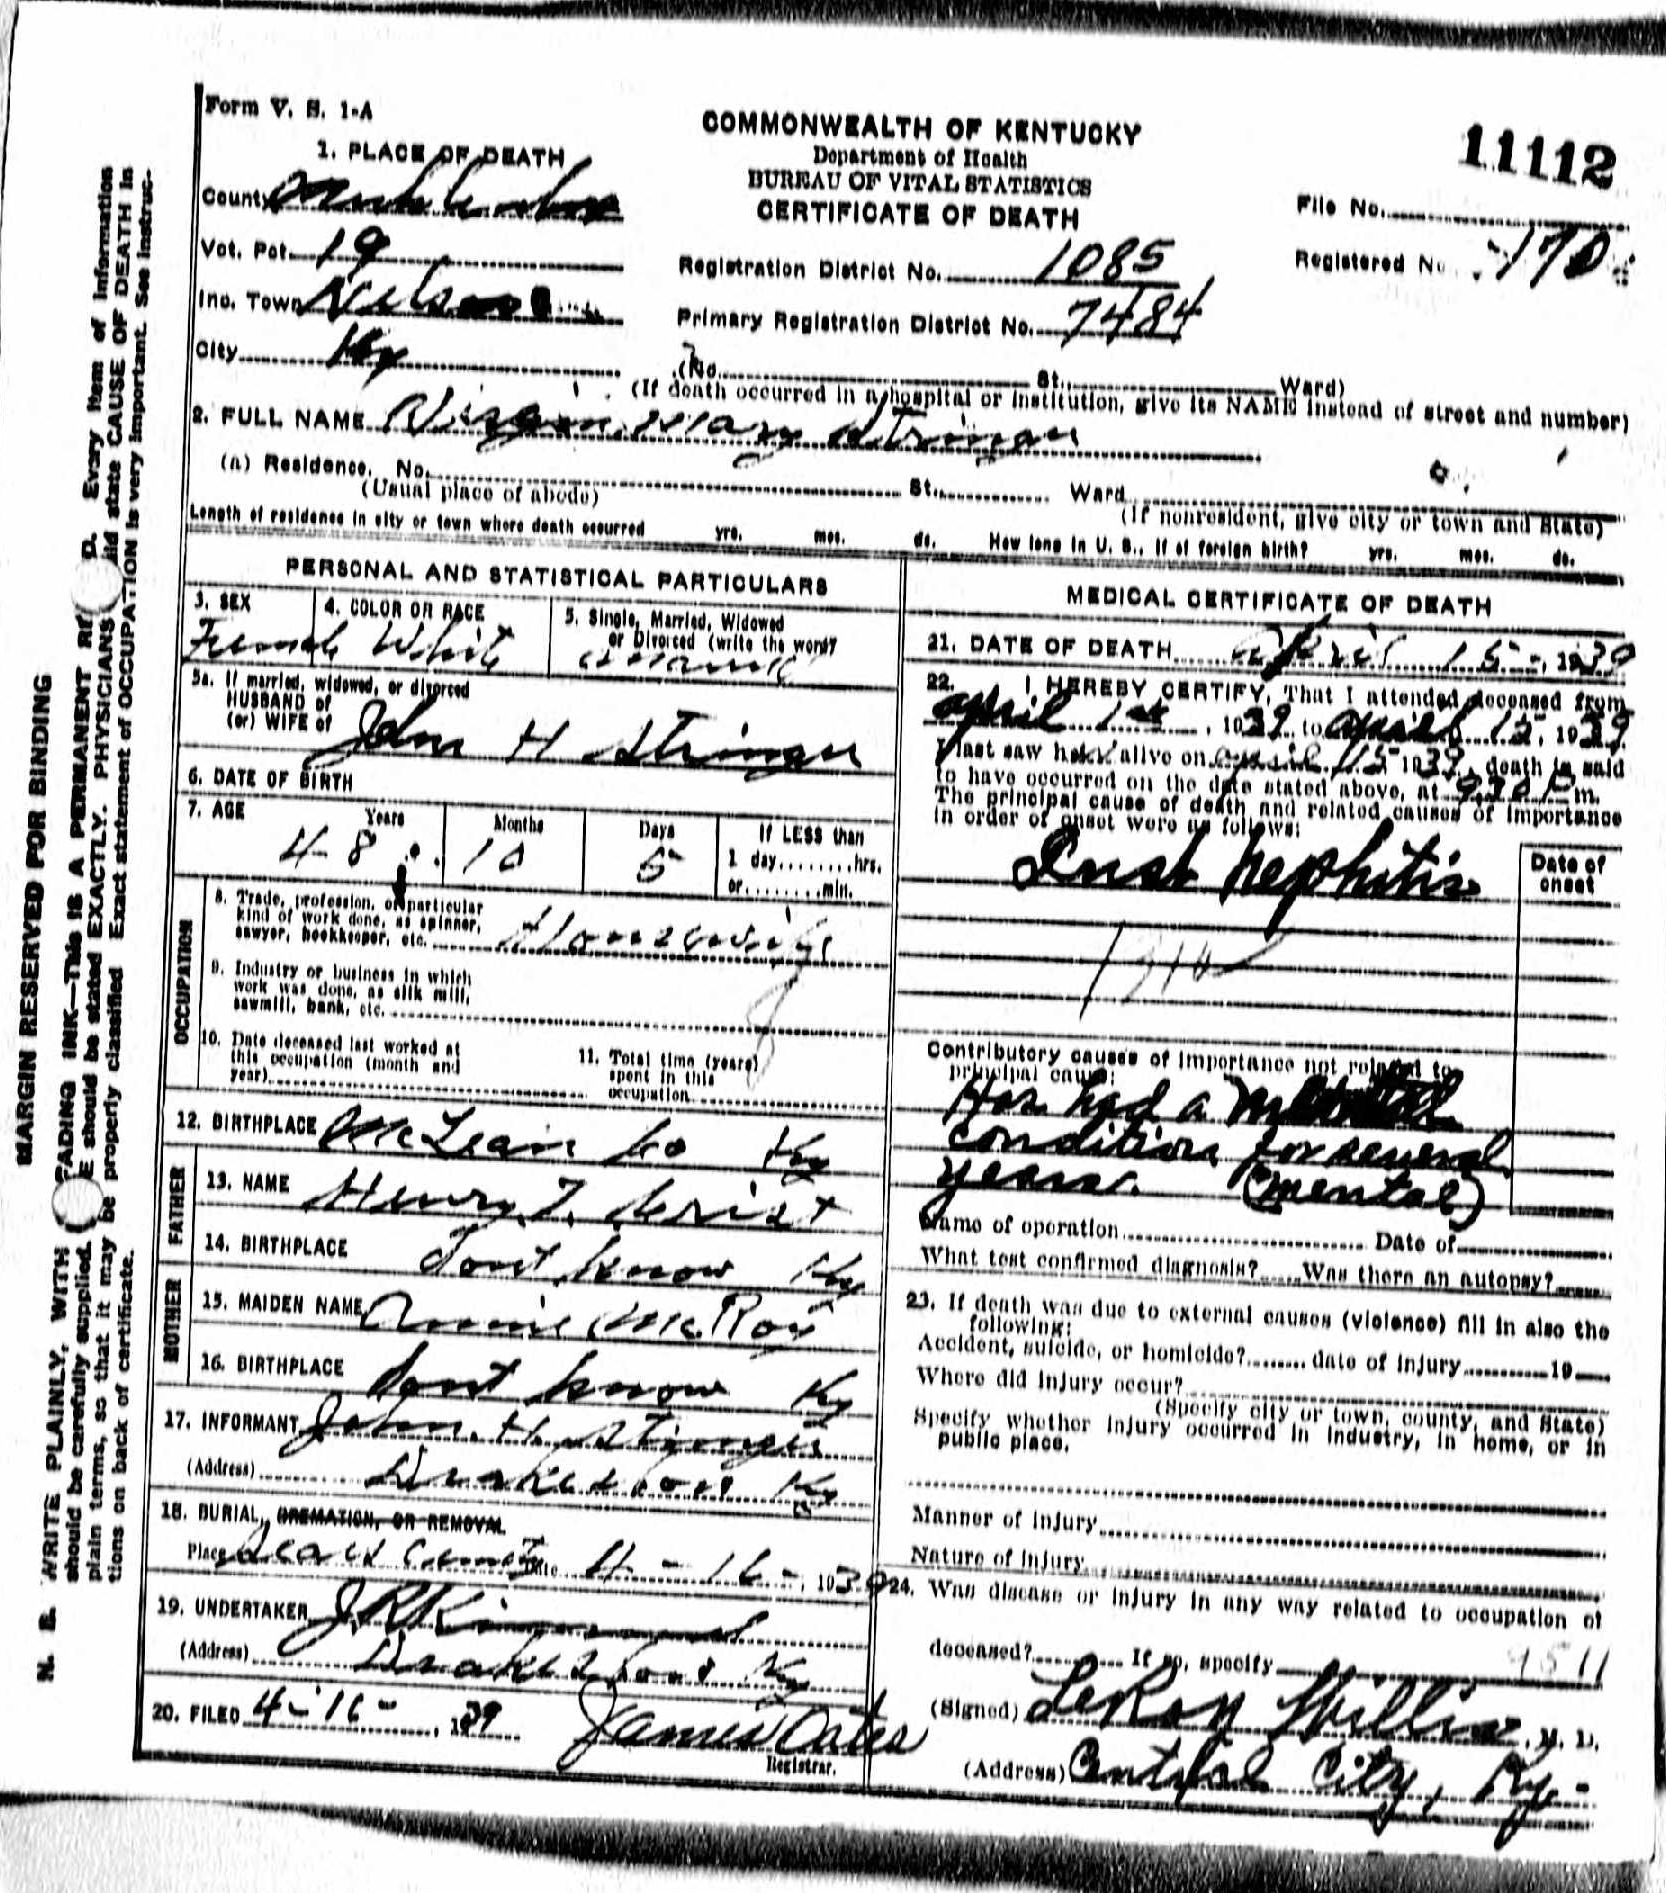 Form V. S. 1-A
COMMONWEALTH OF KENTUCKY
Department of Health
BUREAU OF VITAL STATISTICS
CERTIFICATE OF DEATH
11112
1. PLACE OF DEATH
County
Vot. Pct. 19
Inc. Town
City Ky
Registration District No. 1085
Primary Registration District No. 7484
File No.
Registered No. 170
(No. St. Ward)
(If death occurred in a hospital or institution, give its NAME instead of street and number)
2. FULL NAME Mary Stringer
(a) Residence. No. St. Ward
(Usual place of abode) (If nonresident, give city or town and State)
Length of residence in city or town where death occurred yrs. mos. ds. How long in U. S., if of foreign birth? yrs. mos. ds.
PERSONAL AND STATISTICAL PARTICULARS
3. SEX 4. COLOR OR RACE 5. Single, Married, Widowed
or Divorced (write the word)
Female White
5a. If married, widowed, or divorced
HUSBAND of
(or) WIFE of John H Stringer
6. DATE OF BIRTH
7. AGE Years Months Days If LESS than
48 10 5 1 day........hrs.
or........min.
OCCUPATION
8. Trade, profession, or particular
kind of work done, as spinner,
sawyer, bookkeeper, etc. Housewife
9. Industry or business in which
work was done, as silk mill,
sawmill, bank, etc.
10. Date deceased last worked at
this occupation (month and
year)
11. Total time (years)
spent in this
occupation
12. BIRTHPLACE McLean Co Ky
FATHER
13. NAME Henry T. Crist
14. BIRTHPLACE Dont know Ky
MOTHER
15. MAIDEN NAME Annie McRoy
16. BIRTHPLACE Dont know Ky
17. INFORMANT John. H. Stringer
(Address) Drakesboro Ky
18. BURIAL, CREMATION, OR REMOVAL
Place Date 4-16-, 1939
19. UNDERTAKER J.R Kimmel
(Address) Drakesboro Ky
20. FILED 4-16-, 1939 James Oates
Registrar.
MEDICAL CERTIFICATE OF DEATH
21. DATE OF DEATH April 15-, 1939
22. I HEREBY CERTIFY, That I attended deceased from
April 1st, 1939 to April 15, 1939
I last saw her alive on April 15 1939, death is said
to have occurred on the date stated above, at 9.30 P m.
The principal cause of death and related causes of importance
in order of onset were as follows:
Date of
onset
Nephitis
Contributory causes of importance not related to
principal cause:
Has had a
condition for several
years. (Mental)
Name of operation Date of
What test confirmed diagnosis? Was there an autopsy?
23. If death was due to external causes (violence) fill in also the
following:
Accident, suicide, or homicide? date of injury 19
Where did injury occur?
(Specify city or town, county, and State)
Specify whether injury occurred in industry, in home, or in
public place.
Manner of injury
Nature of injury
24. Was disease or injury in any way related to occupation of
deceased? If so, specify
(Signed) LeRoy Willis, M. D.
(Address) Central City, Ky-
MARGIN RESERVED FOR BINDING
N. B. WRITE PLAINLY, WITH FADING INK—THIS IS A PERMANENT RE D. Every item of information
should be carefully supplied. E should be stated EXACTLY. PHYSICIANS should state CAUSE OF DEATH in
plain terms, so that it may be properly classified Exact statement of OCCUPATION is very important. See instruc-
tions on back of certificate.